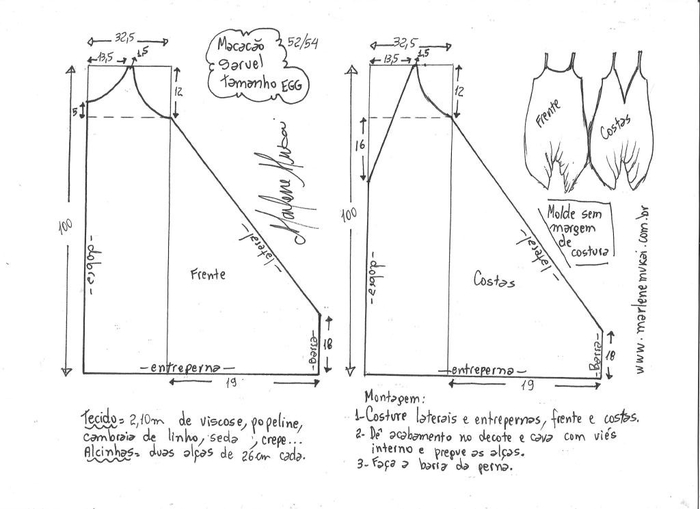 32,5
13,5
1,5
12
5
100
- dobra -
- lateral -
Frente
18
- Barra -
- entreperna -
19
Macacão
saruel
tamanho EGG
52/54
Marlene Mukai
32,5
13,5
1,5
12
16
100
- dobra -
- lateral -
Costas
18
- Barra -
- entreperna -
19
Frente
Costas
Molde sem
margem
de
costura
www.marlenemukai.com.br
Tecido = 2,10m de viscose, popeline,
cambraia de linho, seda, crepe...
Alcinhas = duas alças de 26cm cada.
Montagem:
1- Costure laterais e entrepernas, frente e costas.
2- Dê acabamento no decote e cava com viés
interno e pregue as alças.
3- Faça a barra da perna.